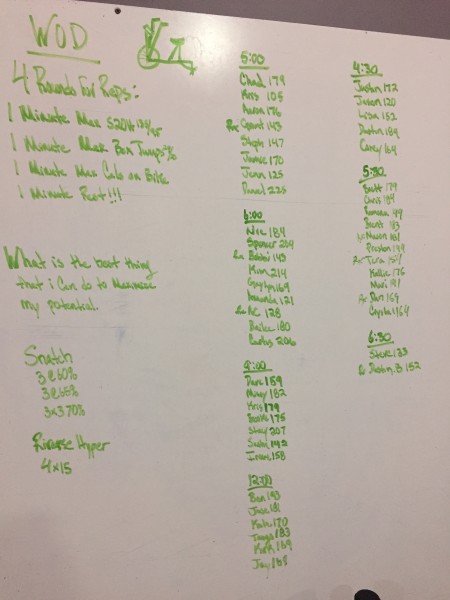 WOD
4 Rounds For Reps:
1 Minute Max
1 Minute Max Box Jumps
1 Minute Max Cals on Bike
1 Minute Rest!!!
What is the best thing
that i Can do to Maximize
my potential.
Snatch
3@60%
3@65%
3x370%
Reverse Hyper
4x15
5:00
Chad 179
Kris 105
Aaron 176
Rx Grant 143
Steph 147
Jamie 170
Jenn 125
Daniel 225
6:00
Nic 184
Spencer 204
Rx Bobbi 143
Kim 214
Gaylyn 169
Amanda 121
Rx AC 128
Bailee 180
Carlos 206
9:00
Dave 159
Missy 182
Kris 179
175
Shay 207
142
158
12:00
Ben 193
Jose 181
Kate 170
183
Kirk 169
Jay 168
4:30
Justin 172
Jason 120
Lisa 152
Dustin 189
Casey 164
5:30
Brett 179
Chris 184
Ramona 149
Brent 183
Mason 161
Preston 149
Rx Tara 154
Kellie 176
Mari 191
Rx Dan 169
Cayla 164
6:30
Steve 133
Rx Dustin.B 152